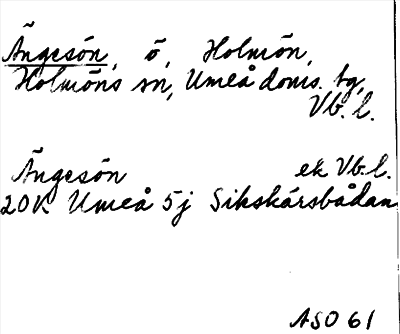 Ängesön, ö, Holmön,
Holmöns sn, Umeå doms. tg,
Vb. l.
Ängesön ek Vb. l.
20K Umeå 5j Sikskärsbådan
ASO 61